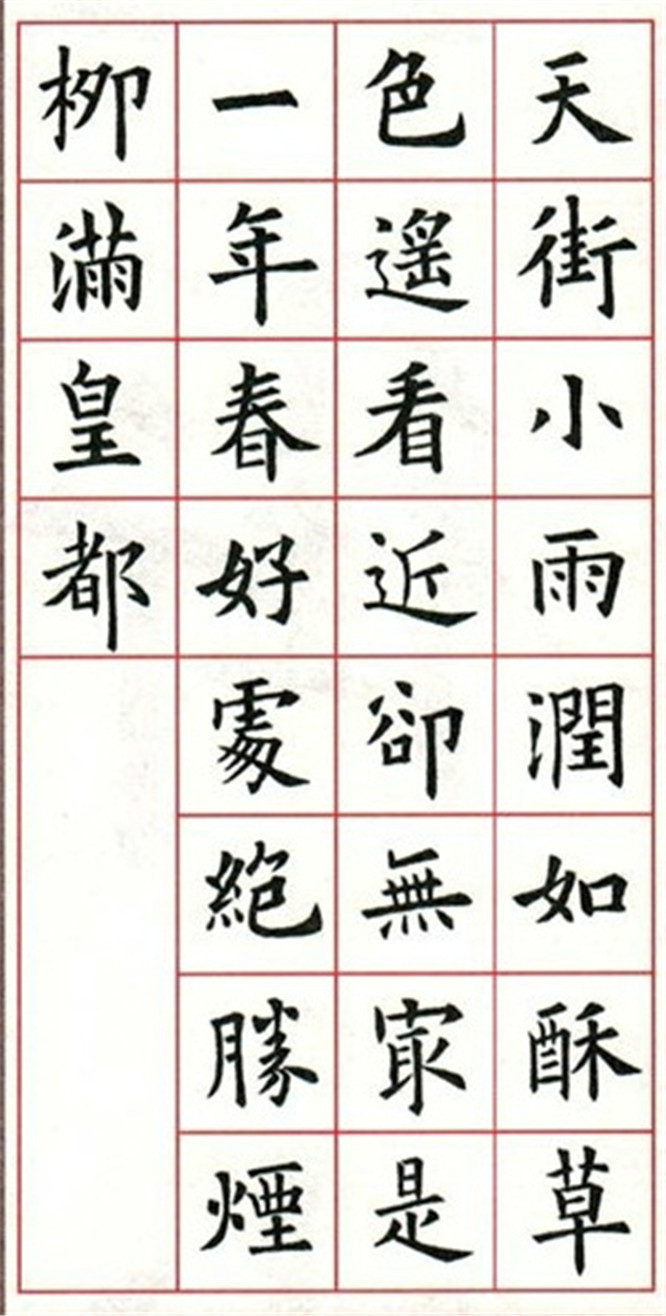 天街小雨潤如酥草
色遥看近卻無冣是
一年春好處絕勝煙
柳滿皇都